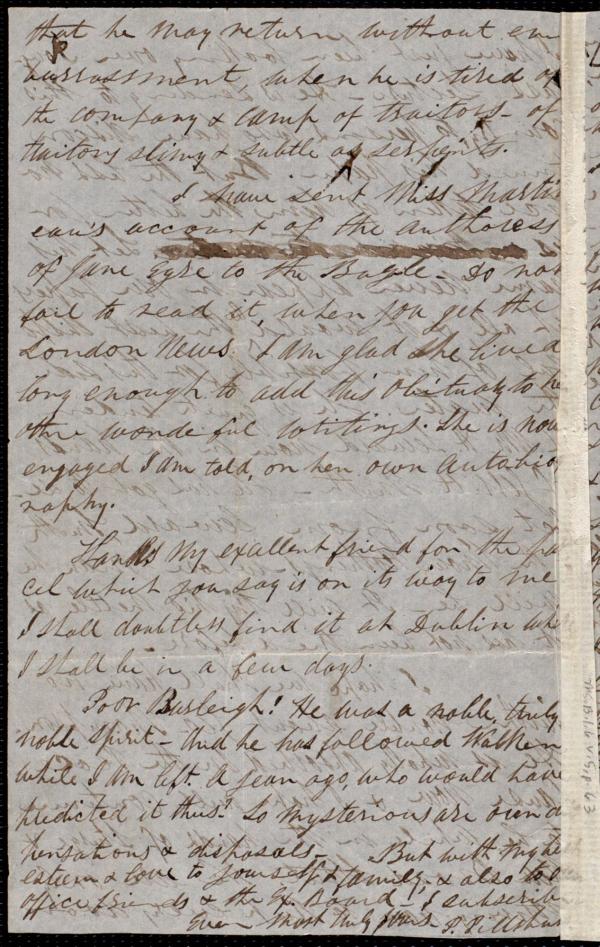 that he may return without em
barrassment, when he is tired of
the company & camp of traitors - of
traitors slimy & subtle as serpents.
I have sent Miss Marti
eau's account of the authoress
of Jane Eyre to the Bugle - Do not
fail to read it, when you get the
London News. I am glad she lived
long enough to add this Obituary to he
other wonderful writings. She is now
engaged I am told, on her own Autobio
raphy.
Thanks my excellent friend for the par
cel which you say is on its way to me
I shall doubtless find it at Dublin whe
I shall be in a few days.
Poor Burleigh! He was a noble, truly
noble spirit - And he has followed Walker
while I am left. A year ago, who would have
predicted it thus? So mysterious are our d
pensations & disposals - But with highe
esteem & love to yourself & family, & also to
office friends & the Ex. Board - I subscrib
Ever - most truly yours P. Pillsbur
Ms.B.1.6 v.5 p. 63